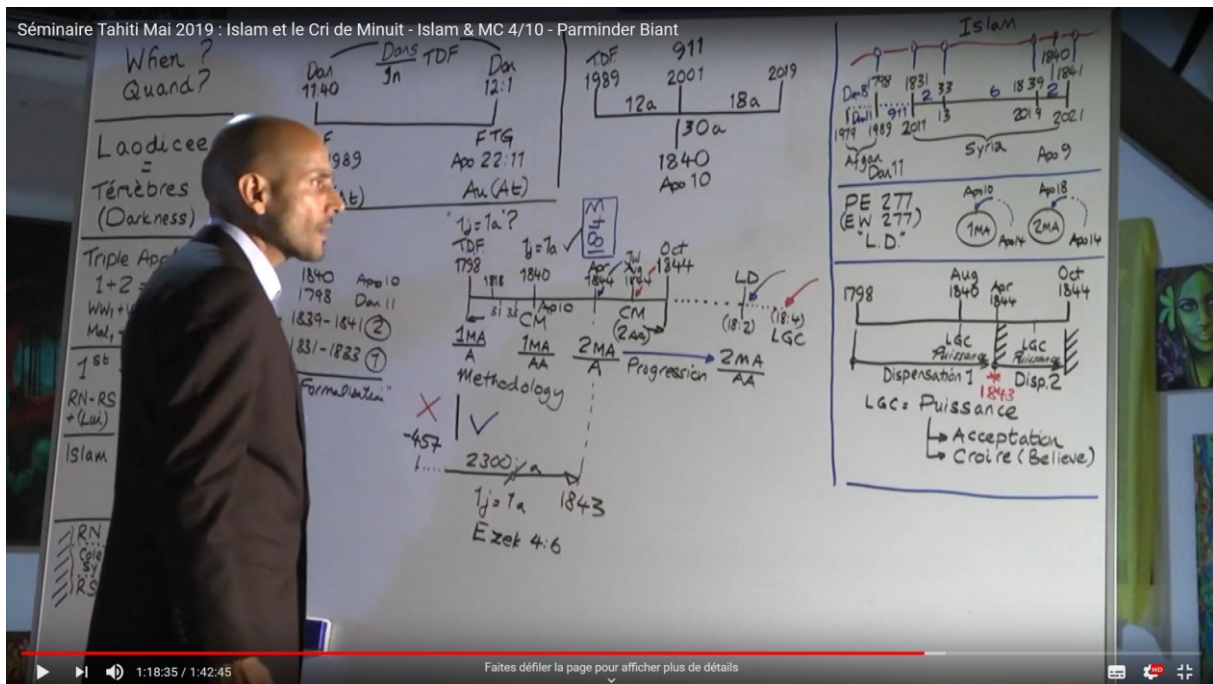 Séminaire Tahiti Mai 2019 : Islam et le Cri de Minuit - Islam & MC 4/10 - Parminder Biant
When ?
Quand?
Laodicee
=
Témèbres
(Darkness)
Triple
1+2 =
1st
RN-RS
+(Lui)
Islam
RN
RS
Dans
In
TDF
Dan
11:40
Dan
12:1
1989
FTG
Apo 22:11
Au (At)
1840 Apo 10
1798 Dan 11
1839-1841 2
1831-1833
TDF
1989
911
2001
2019
12a
18a
30a
1840
Apo 10
"1j=1a"?
TDF
1798
1j=1a
1818
1840
Apr
1844
Oct
1844
31
33
Apo10
CM
CM
LD
(18:2)
(18:4)
LGC
1MA
A
1MA
AA
2MA
A
Progression
2MA
AA
Methodology
-457
2300 j/a
1j=1a
1843
Ezek 4:6
Islam
1840
1798
1831
33
1839
1841
2
6
2
911
1979
1989
2011
13
2019
2021
Afgan
Dan11
Syria
Apo 9
PE 277
(EW 277)
"L.D."
Apo10
1MA
Apo14
Apo 18
2MA
Apo14
1798
Aug
1840
Apr
1844
Oct
1844
LGC
Puissance
LGC
Puissance
Dispensation 1
1843
Disp.2
LGC= Puissance
Acceptation
Croire (Believe)
1:18:35 / 1:42:45
Faites défiler la page pour afficher plus de détails
HD